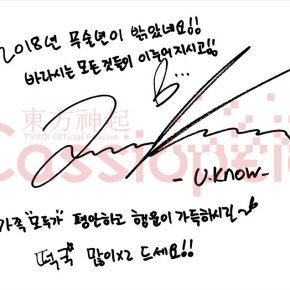 2018년 무술년이 밝았네요!!
바라시는 모든것들이 이루어지시고!!
B...
東方神起
TVXQ! Official Fanclub
Cassiopeia
- U.KNOW -
가족 "모두가" 평안하고 행운이 가득하시길~
떡국 많이x2 드세요!!